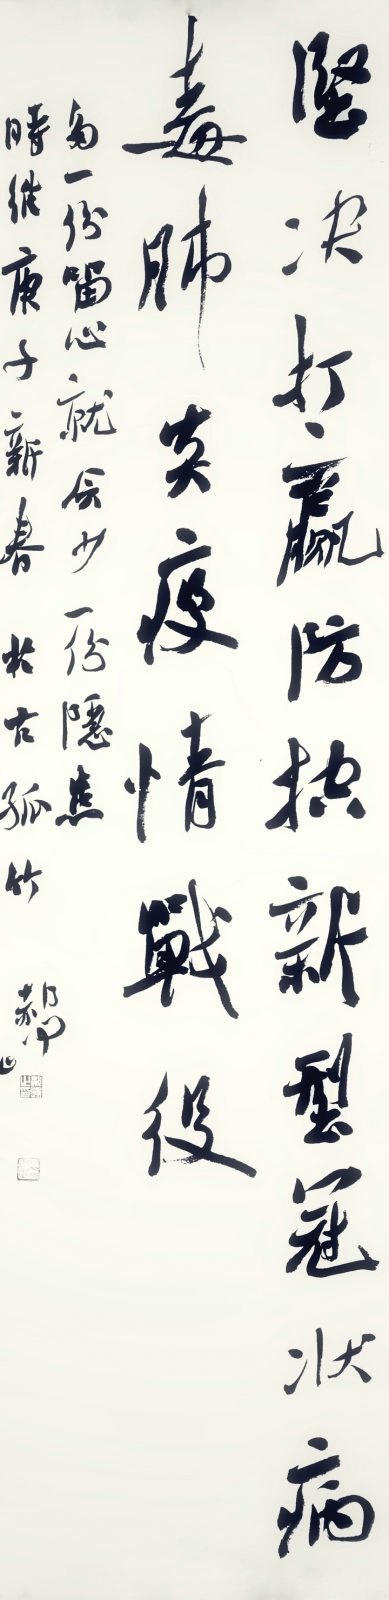 堅决打贏防控新型冠状病
毒肺炎疫情戰役
多一份留心就会少一份隱患
時維庚子新春於古孤竹